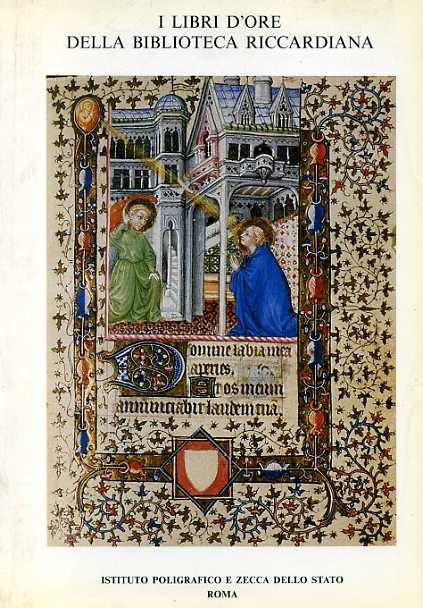 I LIBRI D'ORE
DELLA BIBLIOTECA RICCARDIANA
Domine labia mea
aperies.
Et os meum
annunciabit laudem tuā.
ISTITUTO POLIGRAFICO E ZECCA DELLO STATO
ROMA